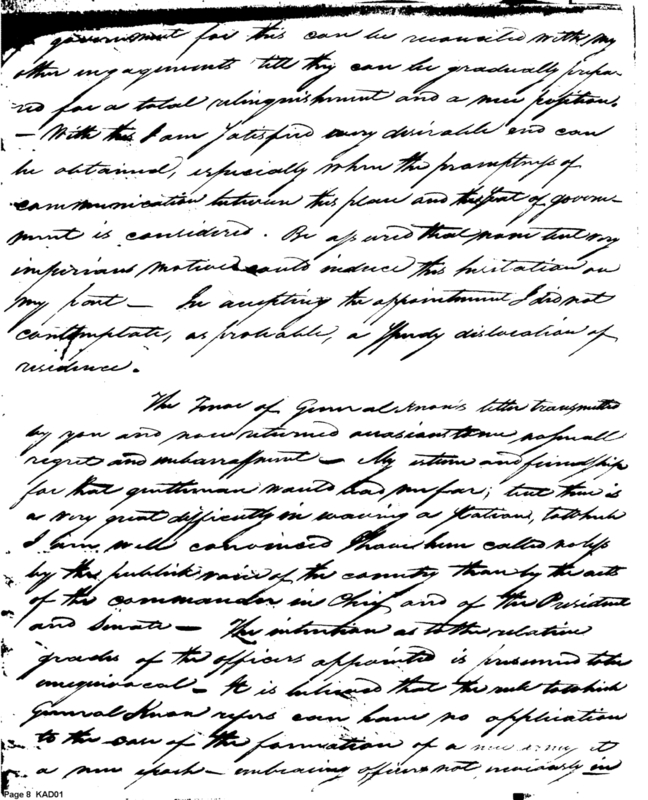 government for this can be reconciled with my
other engagements till they can be gradually prepa-
red for a total relinquishment and a new position.
— With this I am satisfied every desirable end can
be obtained, especially when the promptness of
communication between this place and the seat of govern-
ment is considered. Be assured that none but very
imperious motives could induce this hesitation on
my part — In accepting the appointment I did not
contemplate, as probable, a speedy dislocation of
residence.
The Tenor of General Knox's letter transmitted
by you and now returned occasions to me no small
regret and embarrassment — My esteem and friendship
for that gentleman would lead me far; but there is
a very great difficulty in waving a station, to which
I am well convinced I have been called no less
by the publick voice of the country than by the acts
of the commander in Chief and of the President
and Senate — The intention as to the relative
grades of the officers appointed is presumed to be
unequivocal — It is believed that the rule to which
General Knox refers can have no application
to the case of the formation of a new army at
a new epoch — embracing officers not previously in
Page 8 KAD01